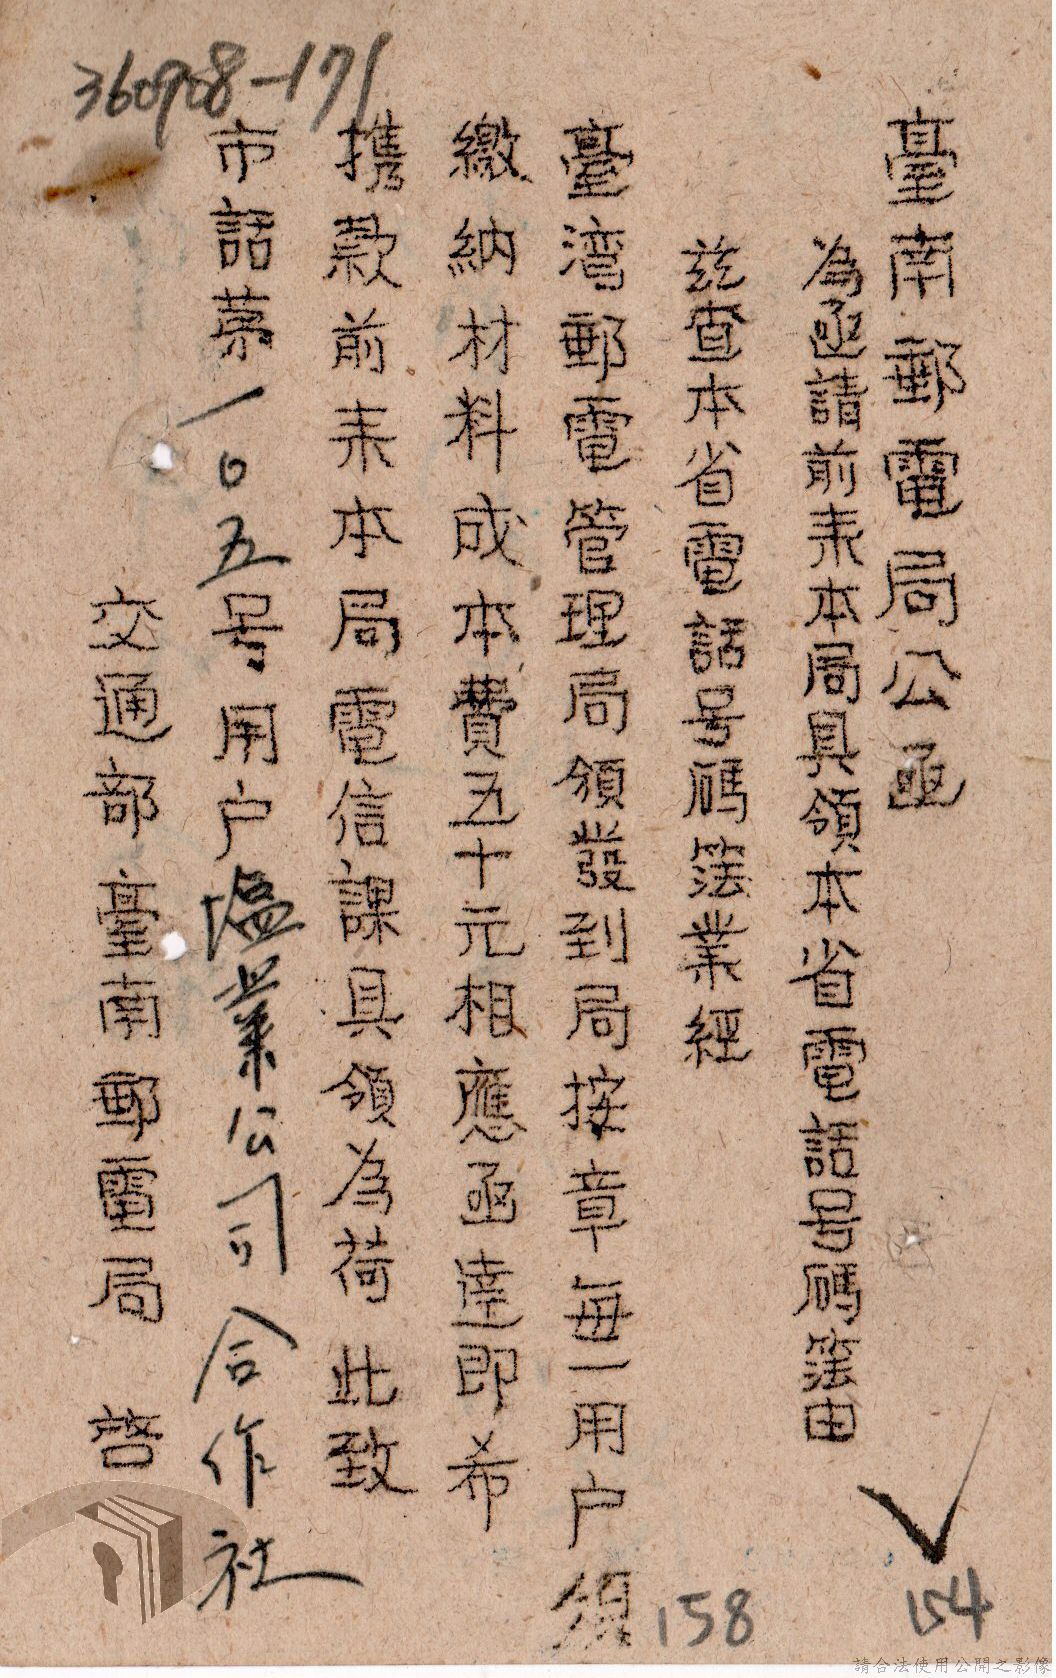 臺南郵電局公函
為函請前来本局具領本省電話号碼簿由
茲查本省電話号碼簿業經
臺灣郵電管理局頒發到局按章每一用户須
繳納材料成本費五十元相應函達即希
携款前来本局電信課具領為荷 此致
市話第一0五号用户塩業公司合作社
交通部臺南郵電局 啓
360908-171
158
154
請合法使用公開之影像